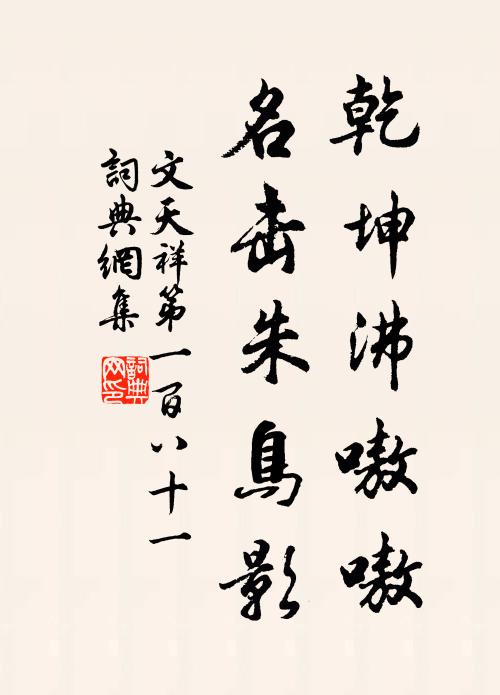 乾坤沸嗷嗷
名朱鳥影
文天祥第一百八十一
詞典網集
詞典网印